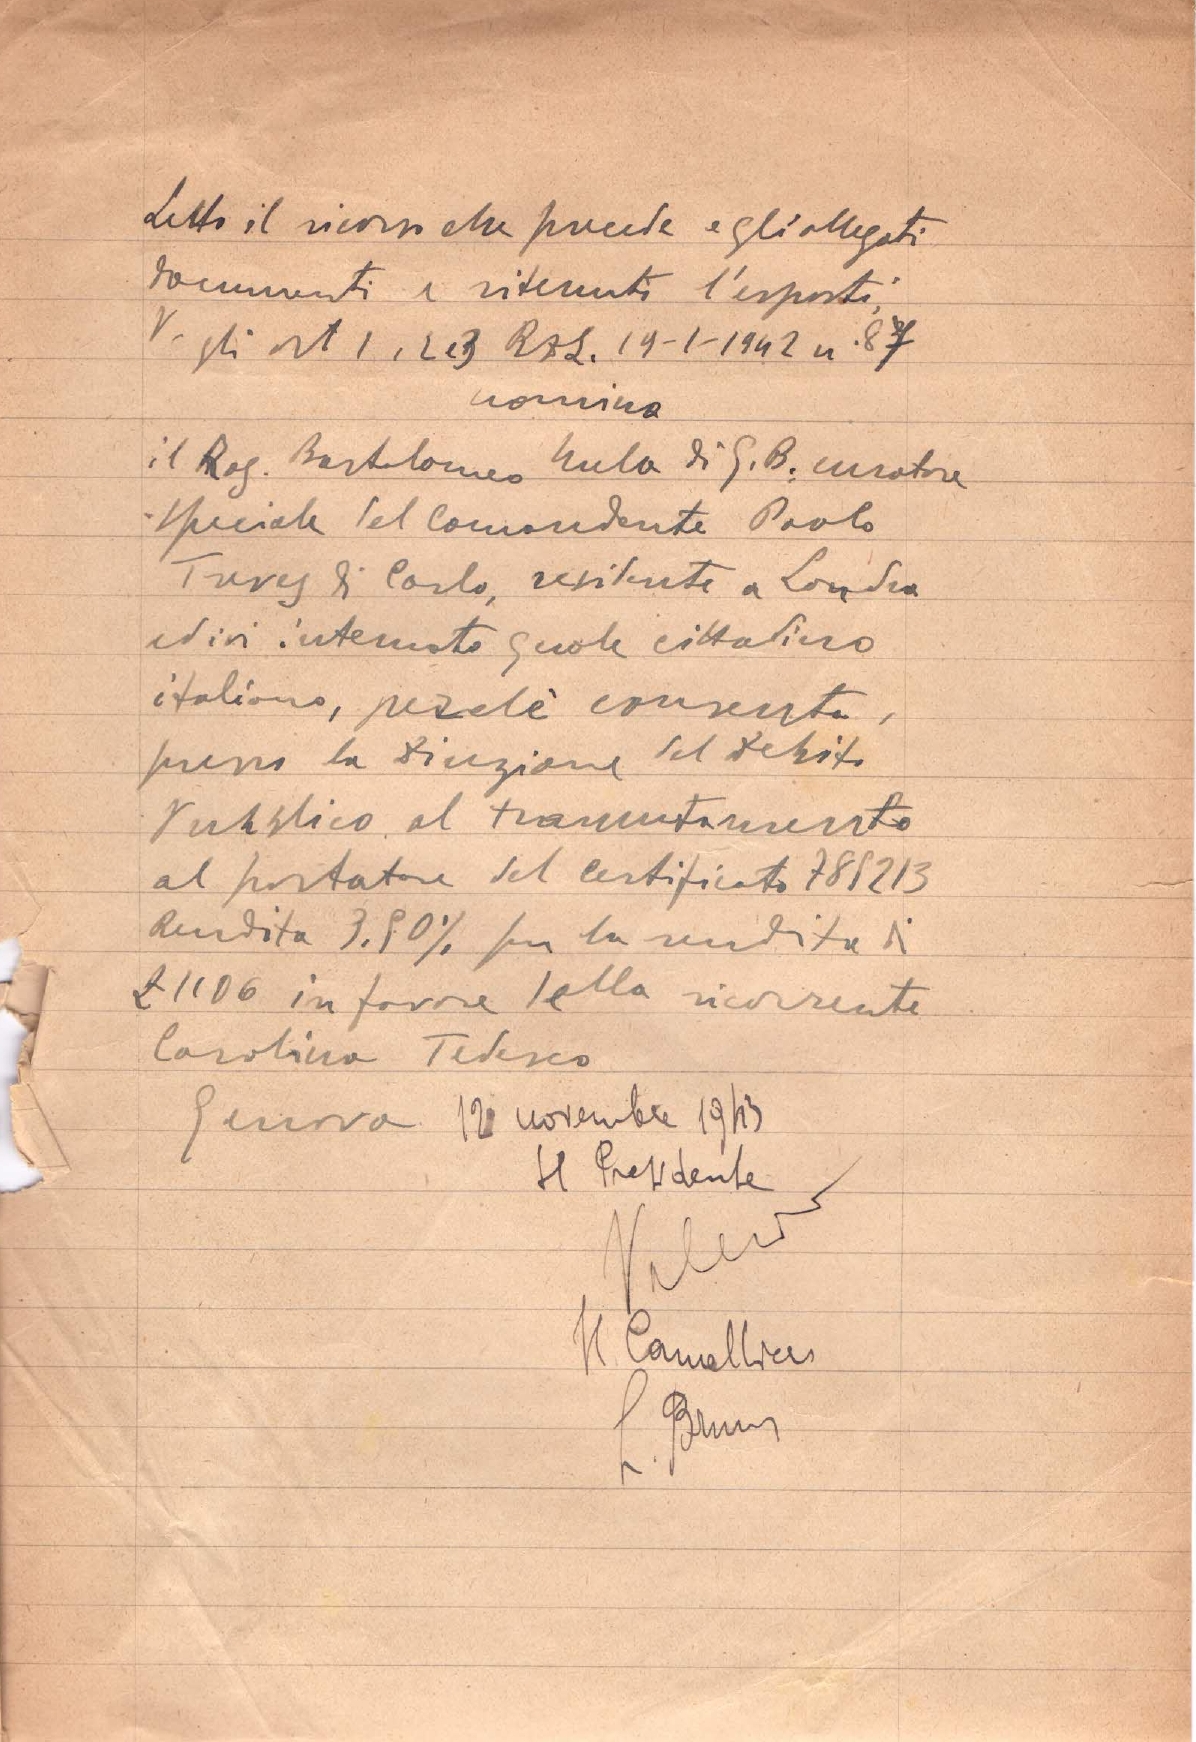 Letto il ricorso che precede e gli allegati
documenti e ritenuto l'esposto,
V. gli art 1, 2 e 3 R.D.L. 19-1-1942 n. 87
nomina
il Rag. Bartolomeo di G.B. curatore
speciale del Comandante Paolo
Treves di Carlo, residente a Londra
ed ivi internato quale cittadino
italiano, perchè consenta,
presso la Direzione del Debito
Pubblico al tramutamento
al portatore del certificato 789213
Rendita 3.50% per la rendita di
£ 1106 in favore della ricorrente
Carolina Tedesco
Genova 12 novembre 1943
Il Presidente
Il Cancelliere
L. Bruno